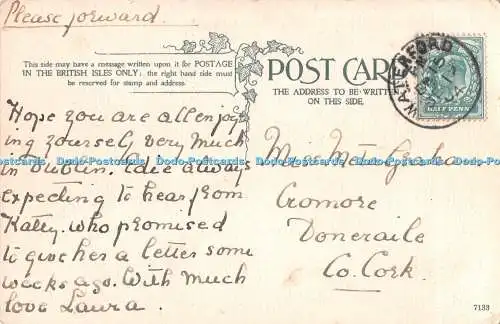 Please forward.
This side may have a message written upon it for POSTAGE
IN THE BRITISH ISLES ONLY; the right hand side must
be reserved for stamp and address.
POST CARD
THE ADDRESS TO BE WRITTEN
ON THIS SIDE.
WATERFORD
HALF PENNY
Hope you are all enjoy
ing yourself very much
in Dublin.
always
expecting to hear from
Katty. who promised
to give her a letter some
weeks ago. With much
love Laura.
Dodo-Postcards Dodo-Postcards Dodo-Postcards Dodo-Postcards
Cromore
Doneraile
Co. Cork.
7133